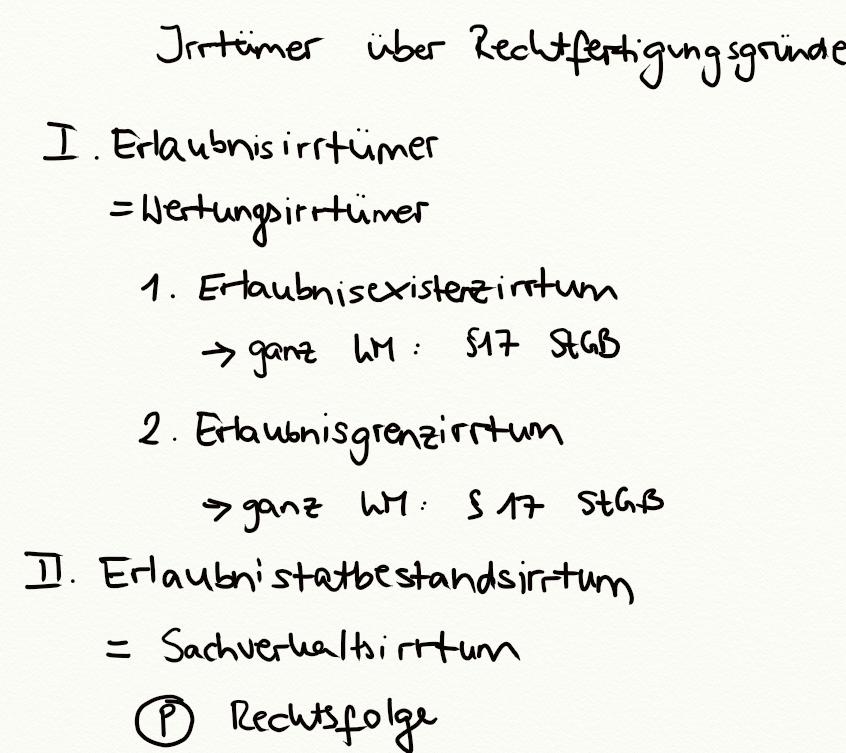 Irrtümer über Rechtfertigungsgründe
I. Erlaubnisirrtümer
= Wertungsirrtümer
1. Erlaubnisexistenzirrtum
→ ganz hM: §17 StGB
2. Erlaubnisgrenzirrtum
→ ganz hM: § 17 StGB
II. Erlaubnistatbestandsirrtum
= Sachverhaltsirrtum
Ⓟ Rechtsfolge